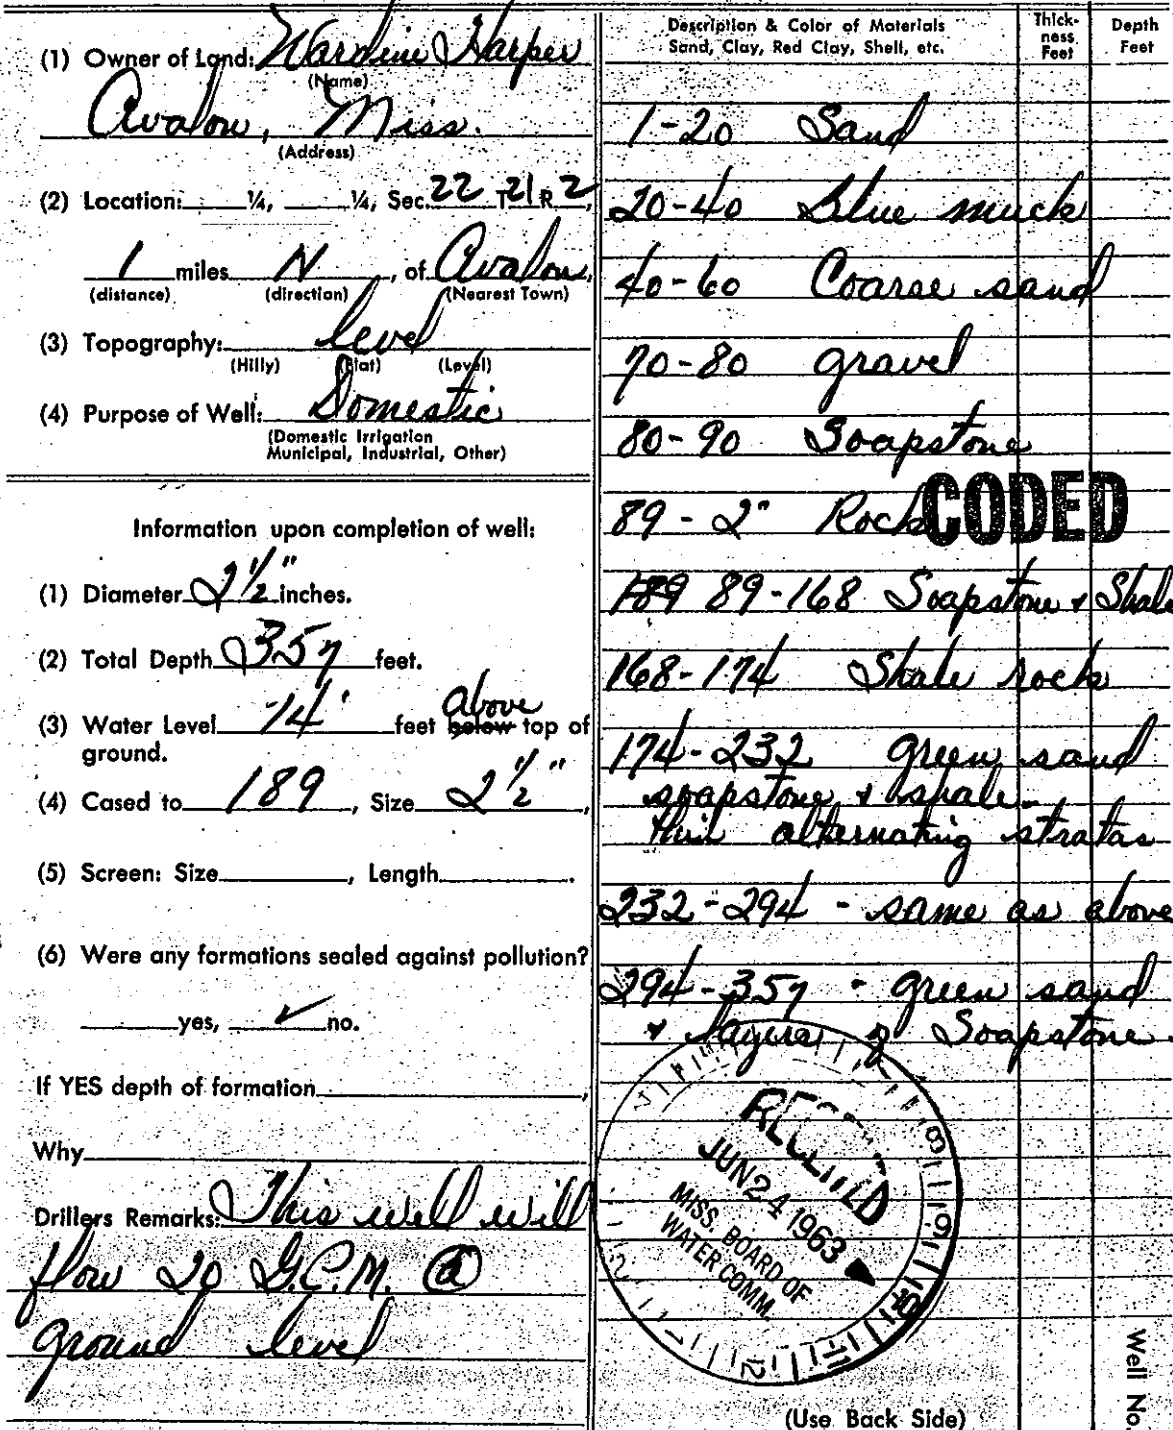 (1) Owner of Land: Nardine Harper
(Name)
Avalon, Miss.
(Address)
(2) Location: ¼, ¼, Sec. 22 T 21 R 2,
1 miles N, of Avalon,
(distance) (direction) (Nearest Town)
(3) Topography: level
(Hilly) (Flat) (Level)
(4) Purpose of Well: Domestic
(Domestic Irrigation
Municipal, Industrial, Other)
Information upon completion of well:
(1) Diameter 2 1/2" inches.
(2) Total Depth 357 feet.
(3) Water Level 14' feet above below top of
ground.
(4) Cased to 189, Size 2 1/2",
(5) Screen: Size, Length.
(6) Were any formations sealed against pollution?
yes, ✓ no.
If YES depth of formation,
Why
Drillers Remarks: This well will
flow 20 G.P.M. @
ground level
Description & Color of Materials
Sand, Clay, Red Clay, Shell, etc.
Thick-
ness
Feet
Depth
Feet
1-20 Sand
20-40 Blue muck
40-60 Coarse sand
70-80 gravel
80-90 Soapstone
89 - 2" Rock
CODED
189 89-168 Soapstone + Shale
168-174 Shale rock
174-232 green sand
soapstone + shale-
thin alternating stratas
232-294 - same as above
294-357 - green sand
+ layers of Soapstone.
RECEIVED
JUN 24 1963
MISS. BOARD OF
WATER COMM.
Well No.
(Use Back Side)